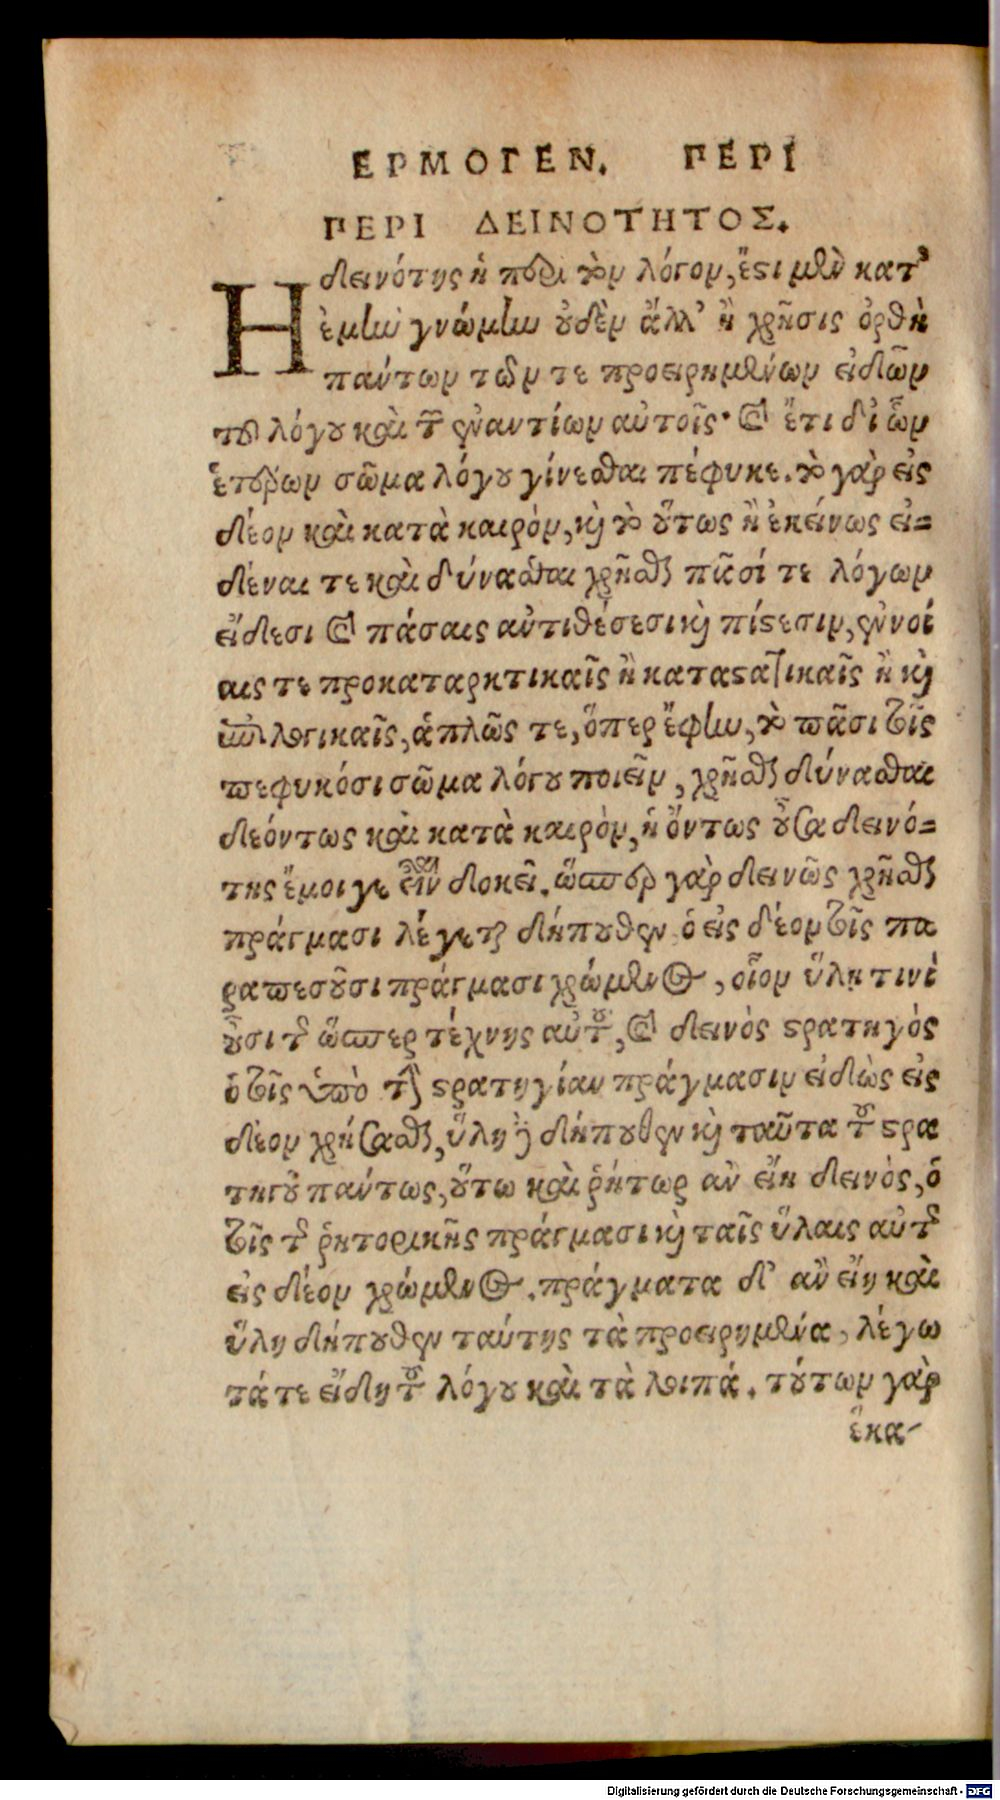 ΕΡΜΟΓΕΝ. ΠΕΡΙ
ΠΕΡΙ ΔΕΙΝΟΤΗΤΟΣ.
Η δεινότης ἡ περὶ τὸν λόγον, ἔστι μὲν κατ’
ἐμὴν γνώμην οὐδὲν ἄλλ’ ἢ χρῆσις ὀρθὴ
πάντων τῶν τε προειρημένων εἰδῶν
τοῦ λόγου καὶ τῶν ἐναντίων αὐτοῖς· καὶ ἔτι δι’ ὧν
ἑτέρων σῶμα λόγου γίνεσθαι πέφυκε. τὸ γὰρ εἰς
δέον καὶ κατὰ καιρὸν, καὶ τὸ οὕτως ἢ ἐκείνως εἰ=
δέναι τε καὶ δύνασθαι χρῆσθαι πᾶσί τε λόγων
εἴδεσι καὶ πάσαις αὐτιθέσεσι καὶ πίστεσιν, ἐννοί
αις τε προκαταρκτικαῖς ἢ καταστατικαῖς ἢ καὶ
ἐπιλογικαῖς, ἁπλῶς τε, ὅπερ ἔφην, τὸ πᾶσι τοῖς
πεφυκόσι σῶμα λόγου ποιεῖν, χρῆσθαι δύνασθαι
δεόντως καὶ κατὰ καιρὸν, ἡ ὄντως οὖσα δεινό=
της ἔμοιγε εἶναι δοκεῖ. ὥσπερ γὰρ δεινῶς χρῆσθαι
πράγμασι λέγεται δήπουθεν ὁ εἰς δέον τοῖς πα
ραπεσοῦσι πράγμασι χρώμενος, οἷον ὕλῃ τινὶ
οὖσι τῆς ὥσπερ τέχνης αὐτοῦ, καὶ δεινὸς στρατηγὸς
ὁ τοῖς ὑπὸ τὴν στρατηγίαν πράγμασιν εἰδὼς εἰς
δέον χρήσασθαι, ὕλη δὲ δήπουθεν καὶ ταῦτα τοῦ στρα
τηγοῦ πάντως, οὕτω καὶ ῥήτωρ ἂν εἴη δεινὸς, ὁ
τοῖς τῆς ῥητορικῆς πράγμασι καὶ ταῖς ὕλαις αὐτῆς
εἰς δέον χρώμενος. πράγματα δ’ ἂν εἴη καὶ
ὕλη δήπουθεν ταύτης τὰ προειρημένα, λέγω
τά τε εἴδη τοῦ λόγου καὶ τὰ λοιπά. τούτων γὰρ
ἕκα-
Digitalisierung gefördert durch die Deutsche Forschungsgemeinschaft - DFG